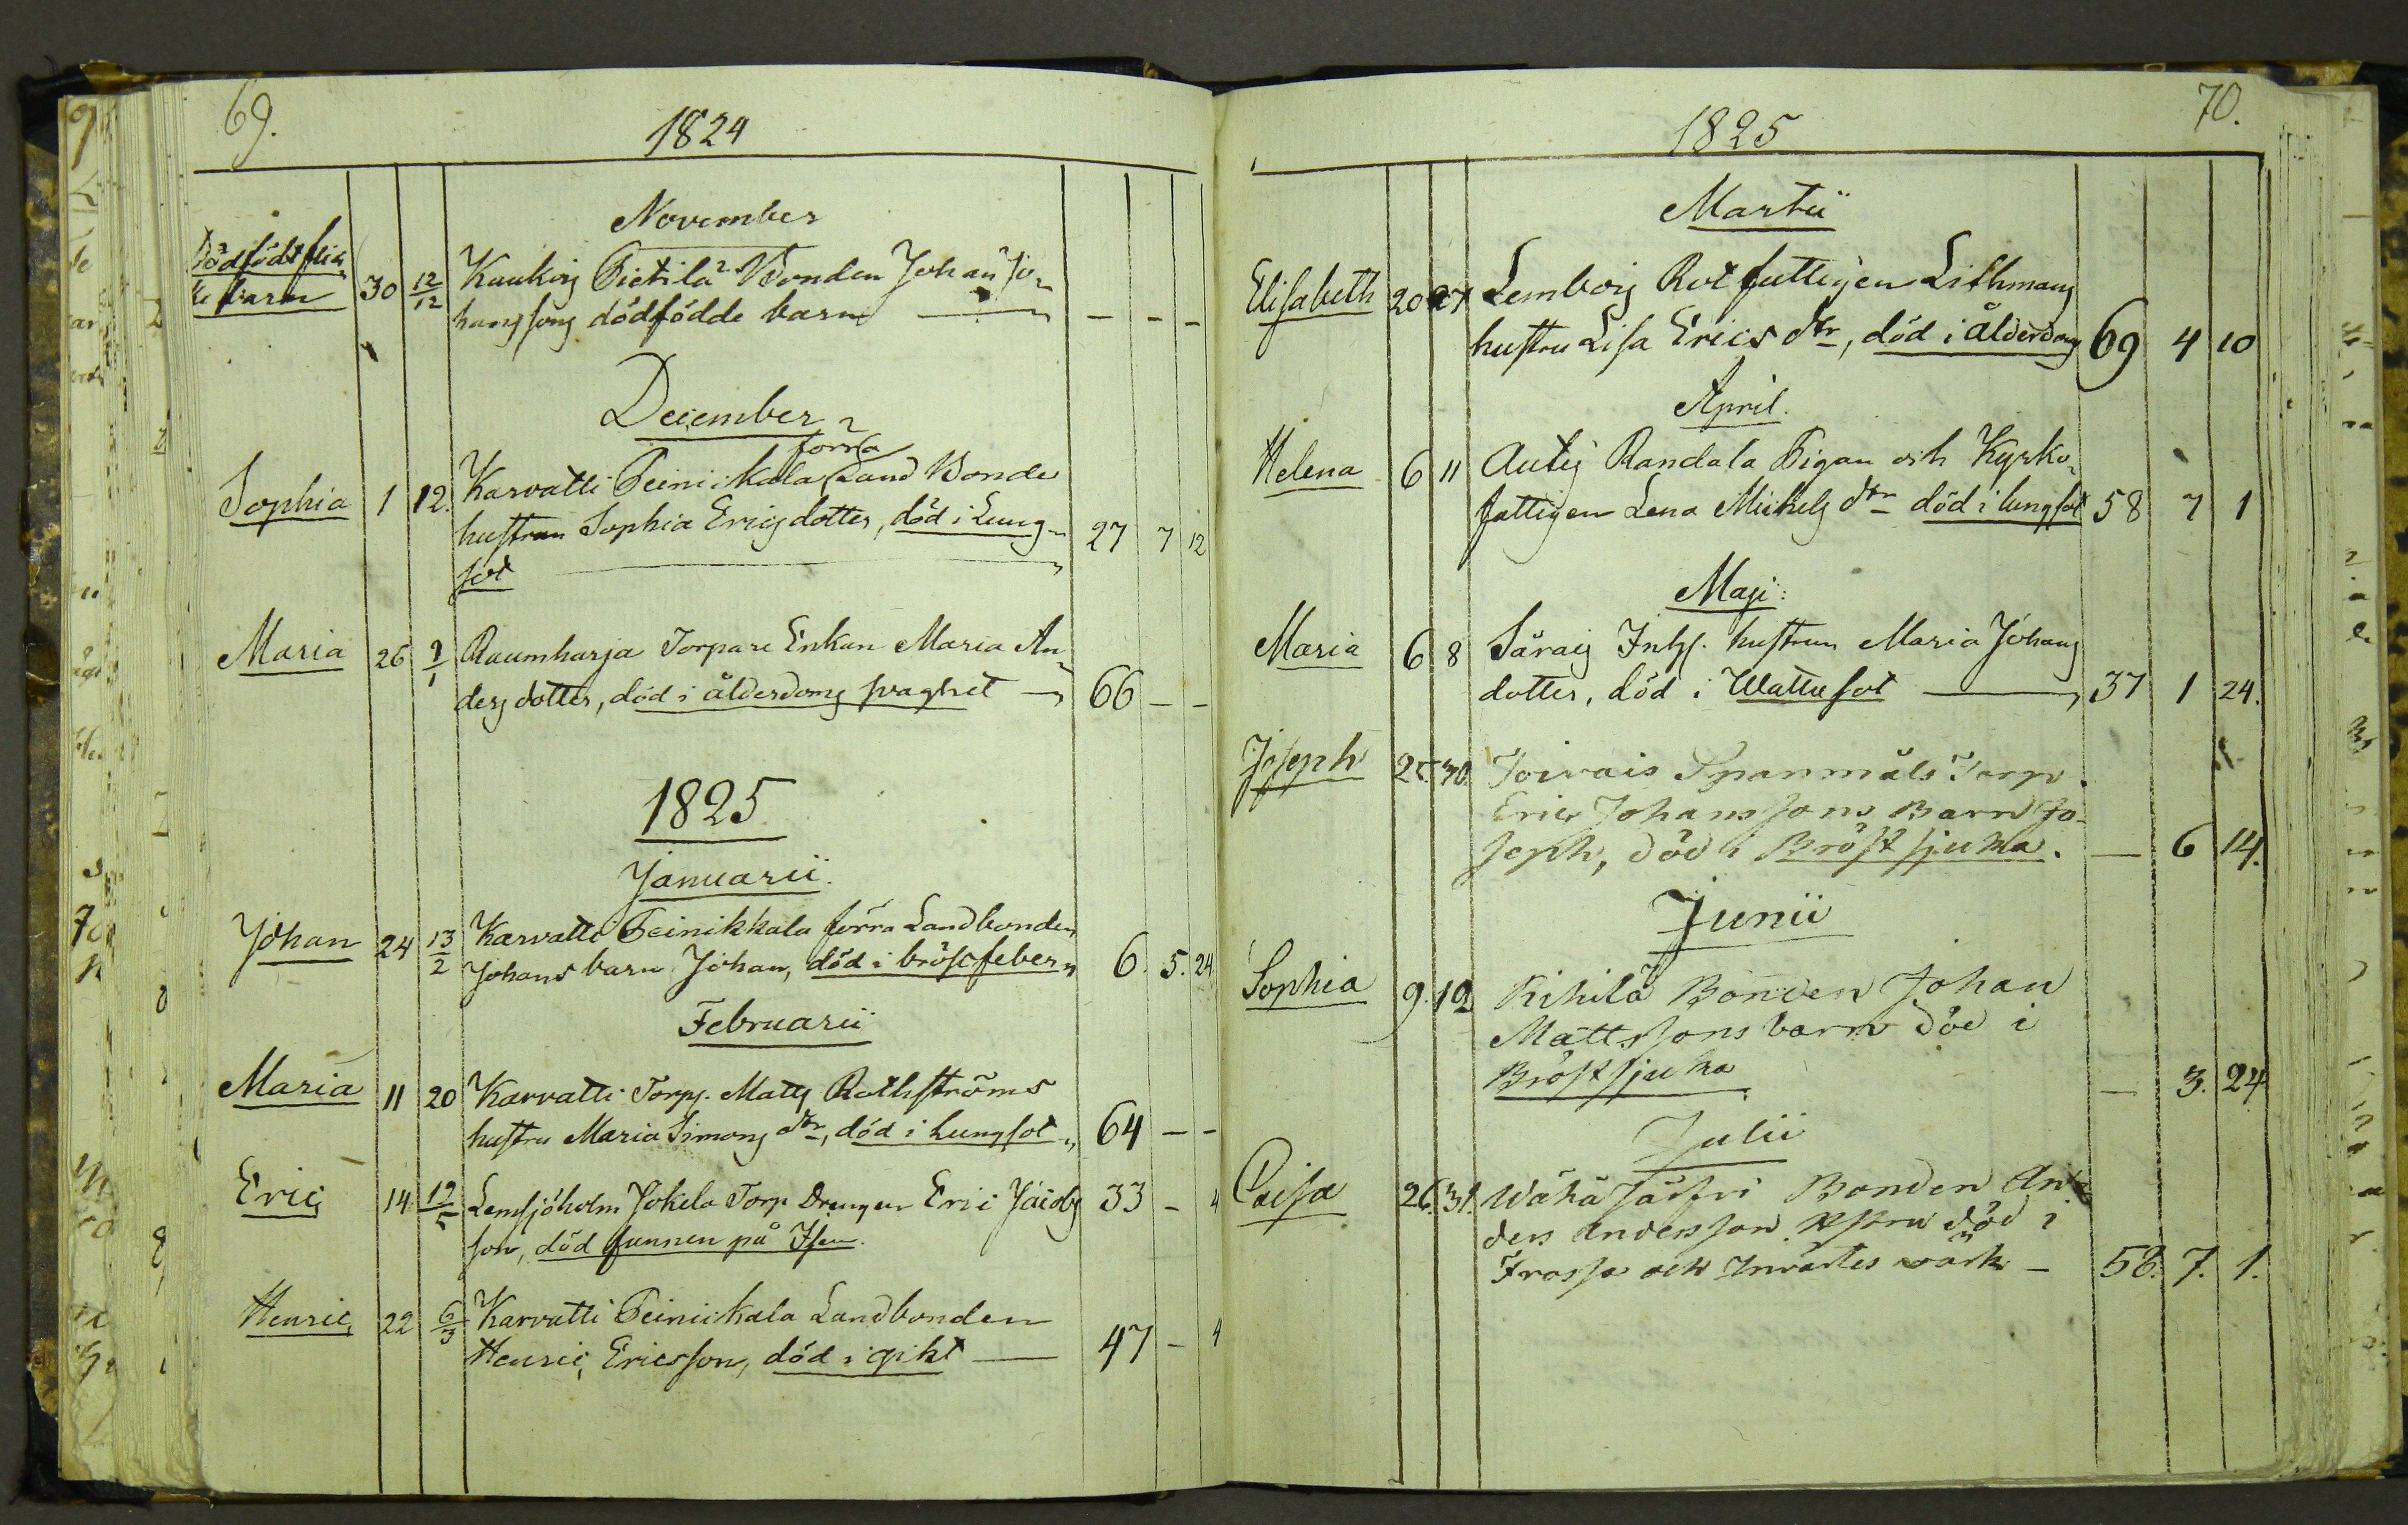 69.
1824
November
Dödfödt flic-
ke barn 30 12/12 Kaukois Pietilä Bonden Johan Jo-
hanssons dödfödde barn — - - -
December
förra
Sophia 1 12. Karvatti Peinickala Land Bonde
hustrun Sophia Ericsdotter, död i Lung- 27 7 12
sot
Maria 26 9/1 Raumharja Torpare Enkan Maria An-
dersdotter, död i ålderdoms svaghet — 66 - -
1825
Januarii.
Johan 24 13/2 Karvatti Peinikkala förra Landbonden
Johans barn Johan, död i bröstfeber 6. 5. 24
Februarii
Maria 11 20 Karvatti Torp. Matts Rothströms
hustru Maria Simons dtr, död i Lungsot 64 - -
Eric 14 12/5 Lemsjöholm Jokela Torp Drengen Eric Jacobs 33 - 4
son, död funnen på Isen.
Henric 22 6/3 Karvatti Peinickala Landbonden
Henric Ericsson, död i gikt — 47 - 4
70.
1825
Martii
Elisabeth 20 27 Lembois Rotfattigen Lithmans
hustru Lisa Erics dtr, död i ålderdom 69 4 10
April.
Helena 6 11 Autis Randala Pigan och Kyrko-
fattigen Lena Michels dtr död i lungsot 58 7 1
Maji:
Maria 6 8 Särais Inhs. hustrun Maria Johans
dotter, död i Wattusot — 37 1 24.
Joseph 25. 30. Toivais Spanmåls Torp.
Erics Johanssons Barn Jo-
seph, död i Bröstsjuka. — 6 14.
Junii
Sophia 9. 19 Rihilä Bonden Johan
Mattssons barn död i
Bröstsjuka — 3. 24
Julii
Caisa 26. 31. Wähä Järfvi Bonden An-
ders Andersson Hstru död i
Frossa och Invärtes värk — 58. 7. 1.